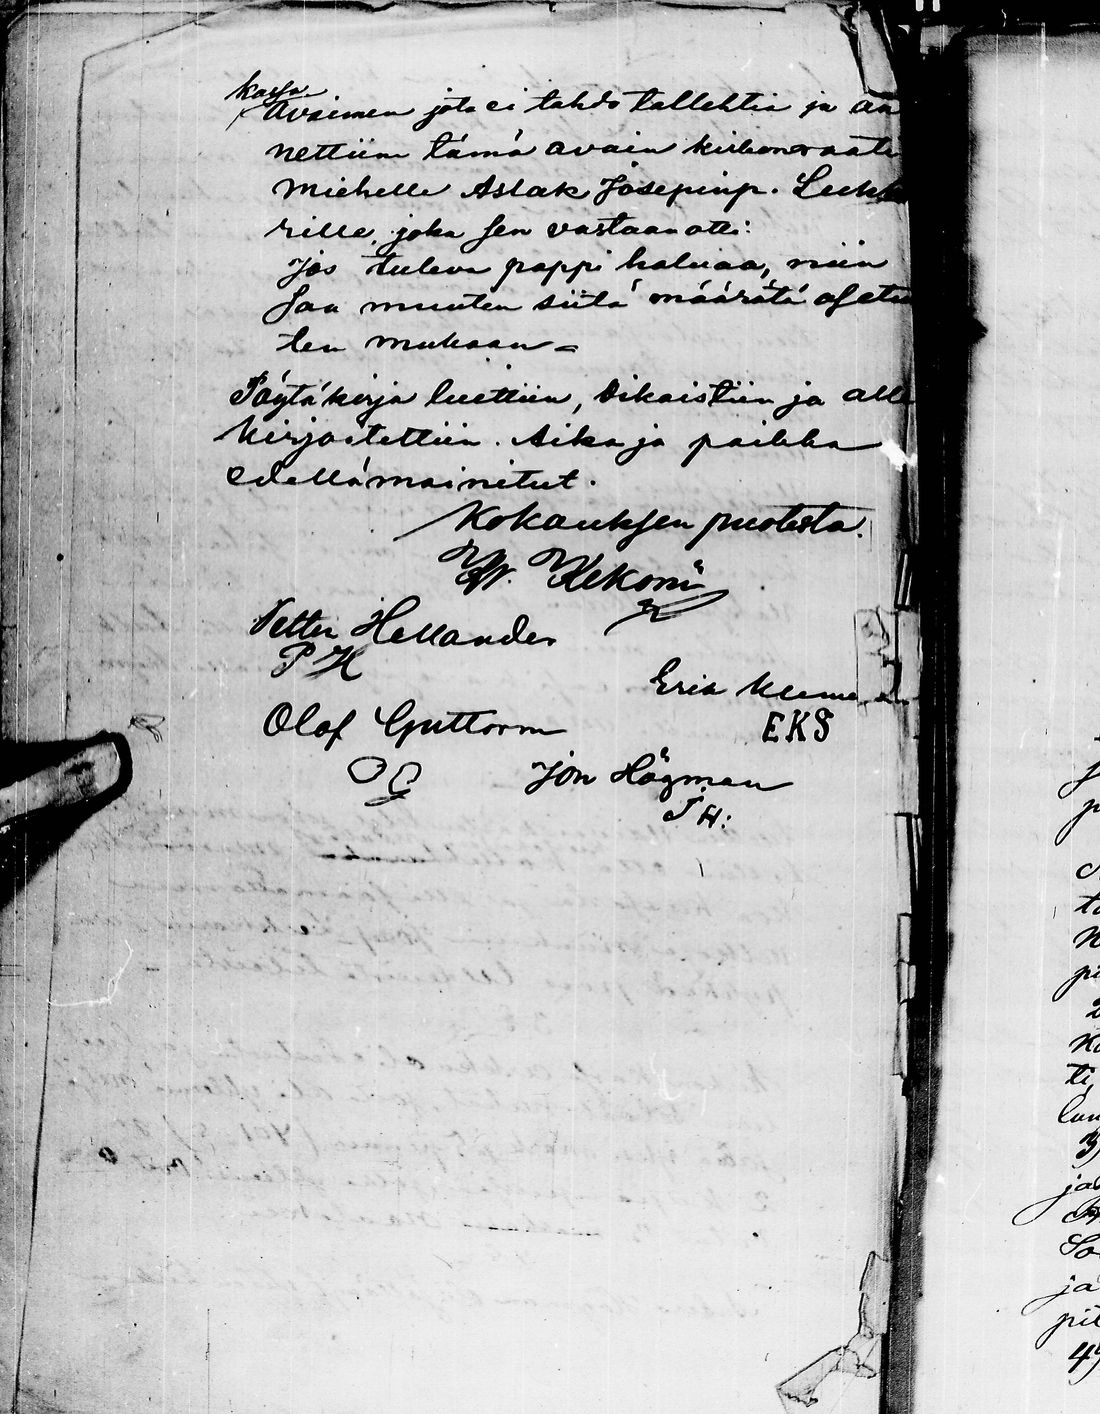 kassa
Avaimen jota ei tahdo tallehtia ja an
nettiin tämä avain kirkonraati
miehelle Aslak Josepinp. Lukka
rille, joka sen vastaanotti:
Jos tuleva pappi haluaa, niin
saa muuten siitä määrätä asetu
ten mukaan =
Pöytäkirja luettiin, oikaistiin ja alle
kirjoitettiin. Aika ja paikka
edellämainitut.
Kokouksen puolesta:
W. Kekoni
Petter Hellander
P H
Erik
EKS
Olof Guttorm
O G
Jon Högman
J H:
2
3)
4)